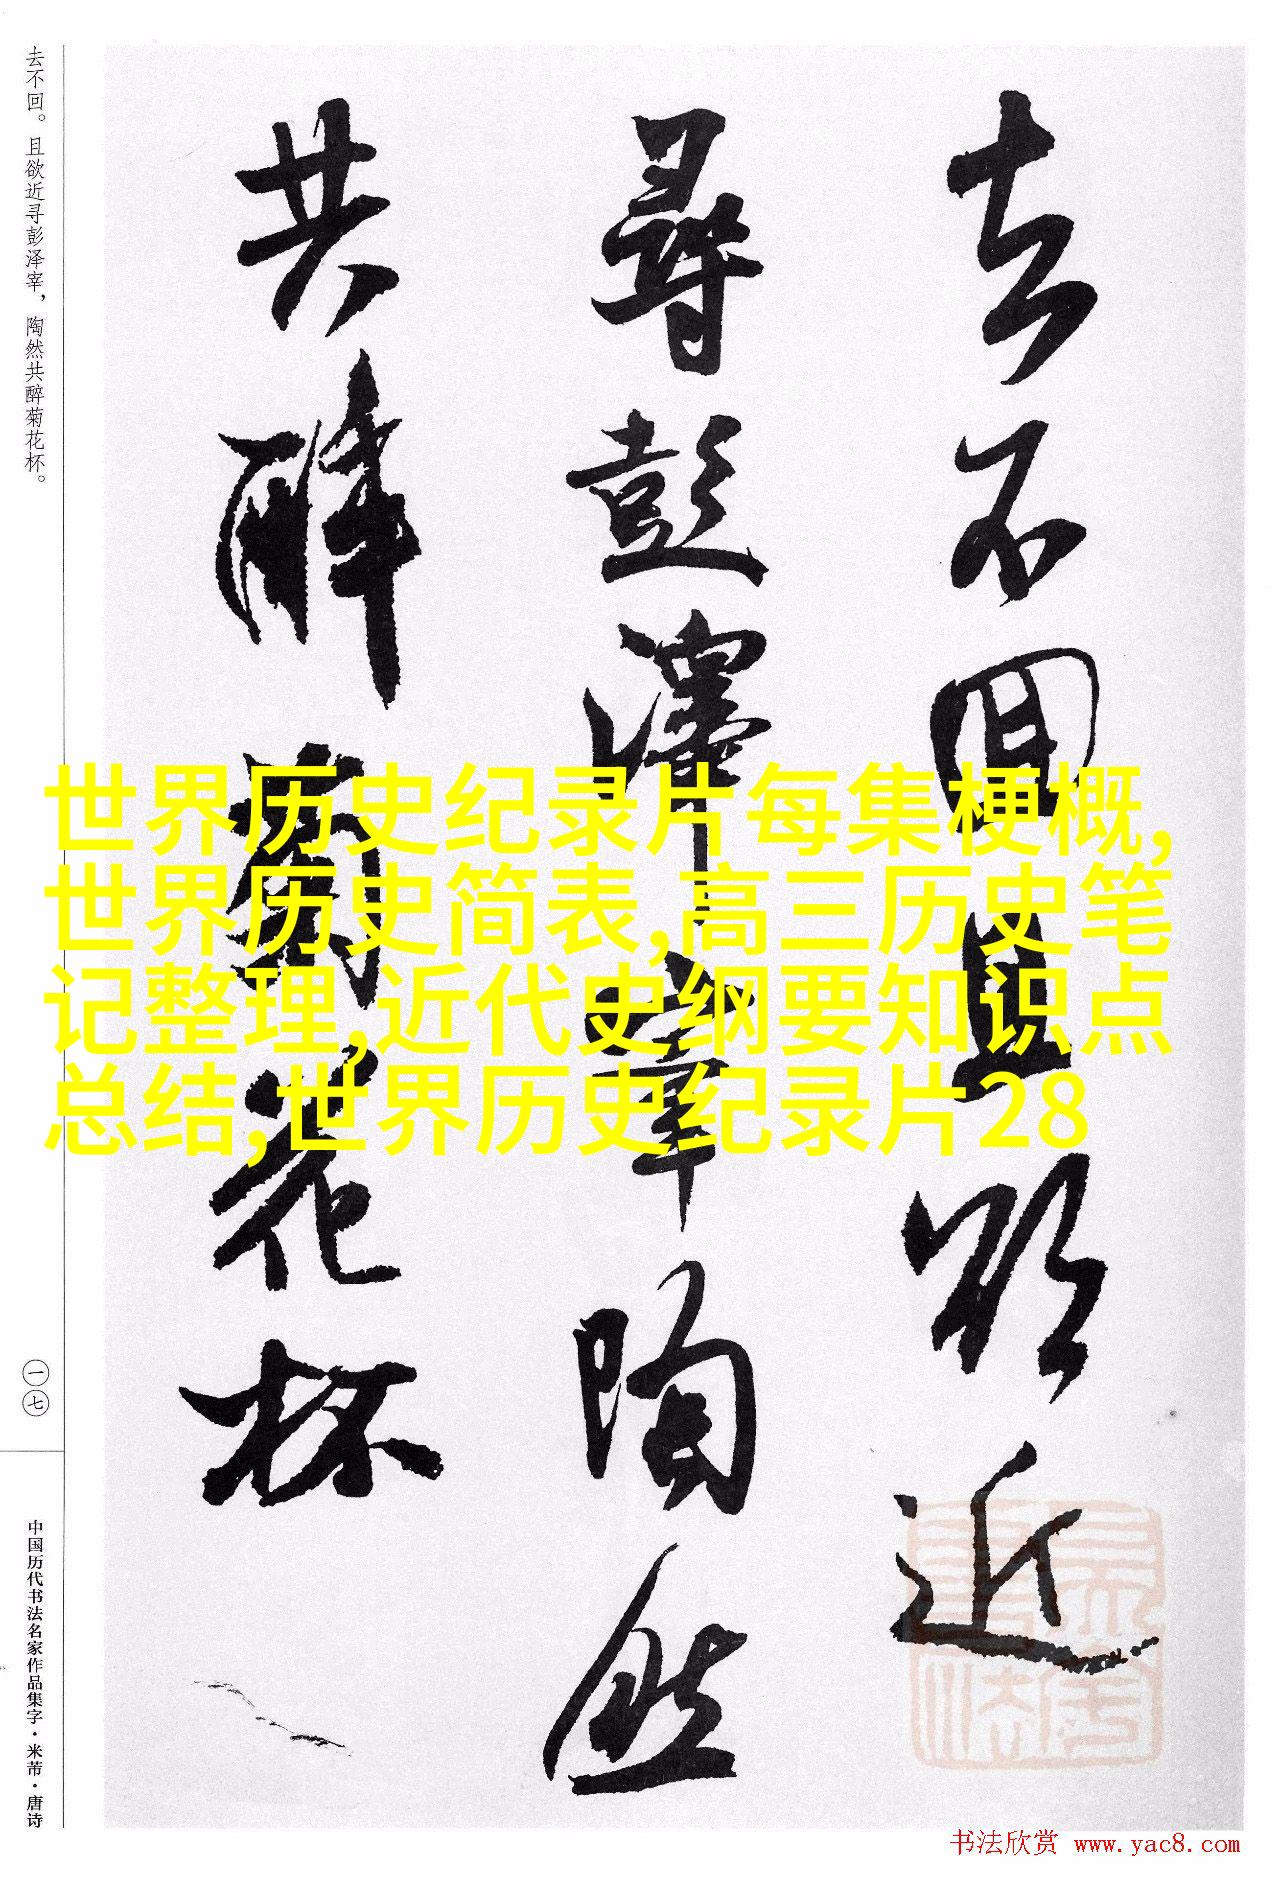 去不回且欲近
尋彭澤宰陶然
共醉菊花杯
去不回。且欲近寻彭泽宰，陶然共醉菊花杯。
一七
中国历代书法名家作品集字·米芾·唐诗
世界历史纪录片每集梗概,
世界历史简表,高三历史笔
记整理,近代史纲要知识点
总结,世界历史纪录片28
书法欣赏 www.yac8.com